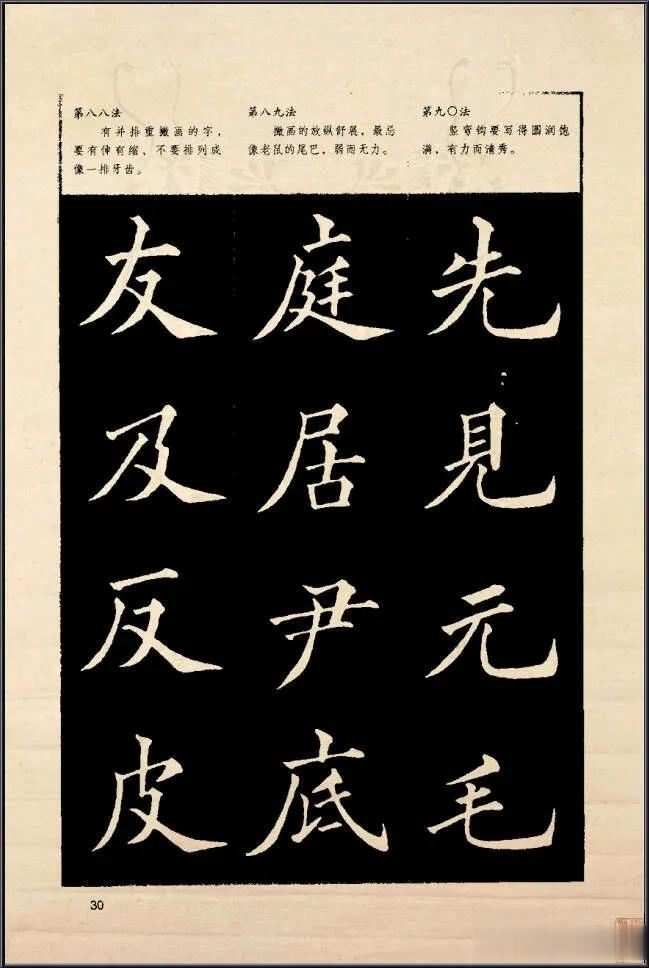 第八八法
有并排重撇画的字，
要有伸有缩，不要排列成
像一排牙齿。
第八九法
撇画的放纵舒展，最忌
像老鼠的尾巴，弱而无力。
第九〇法
竖弯钩要写得圆润饱
满，有力而清秀。
友 庭 先
及 居 見
反 尹 元
皮 底 毛
30